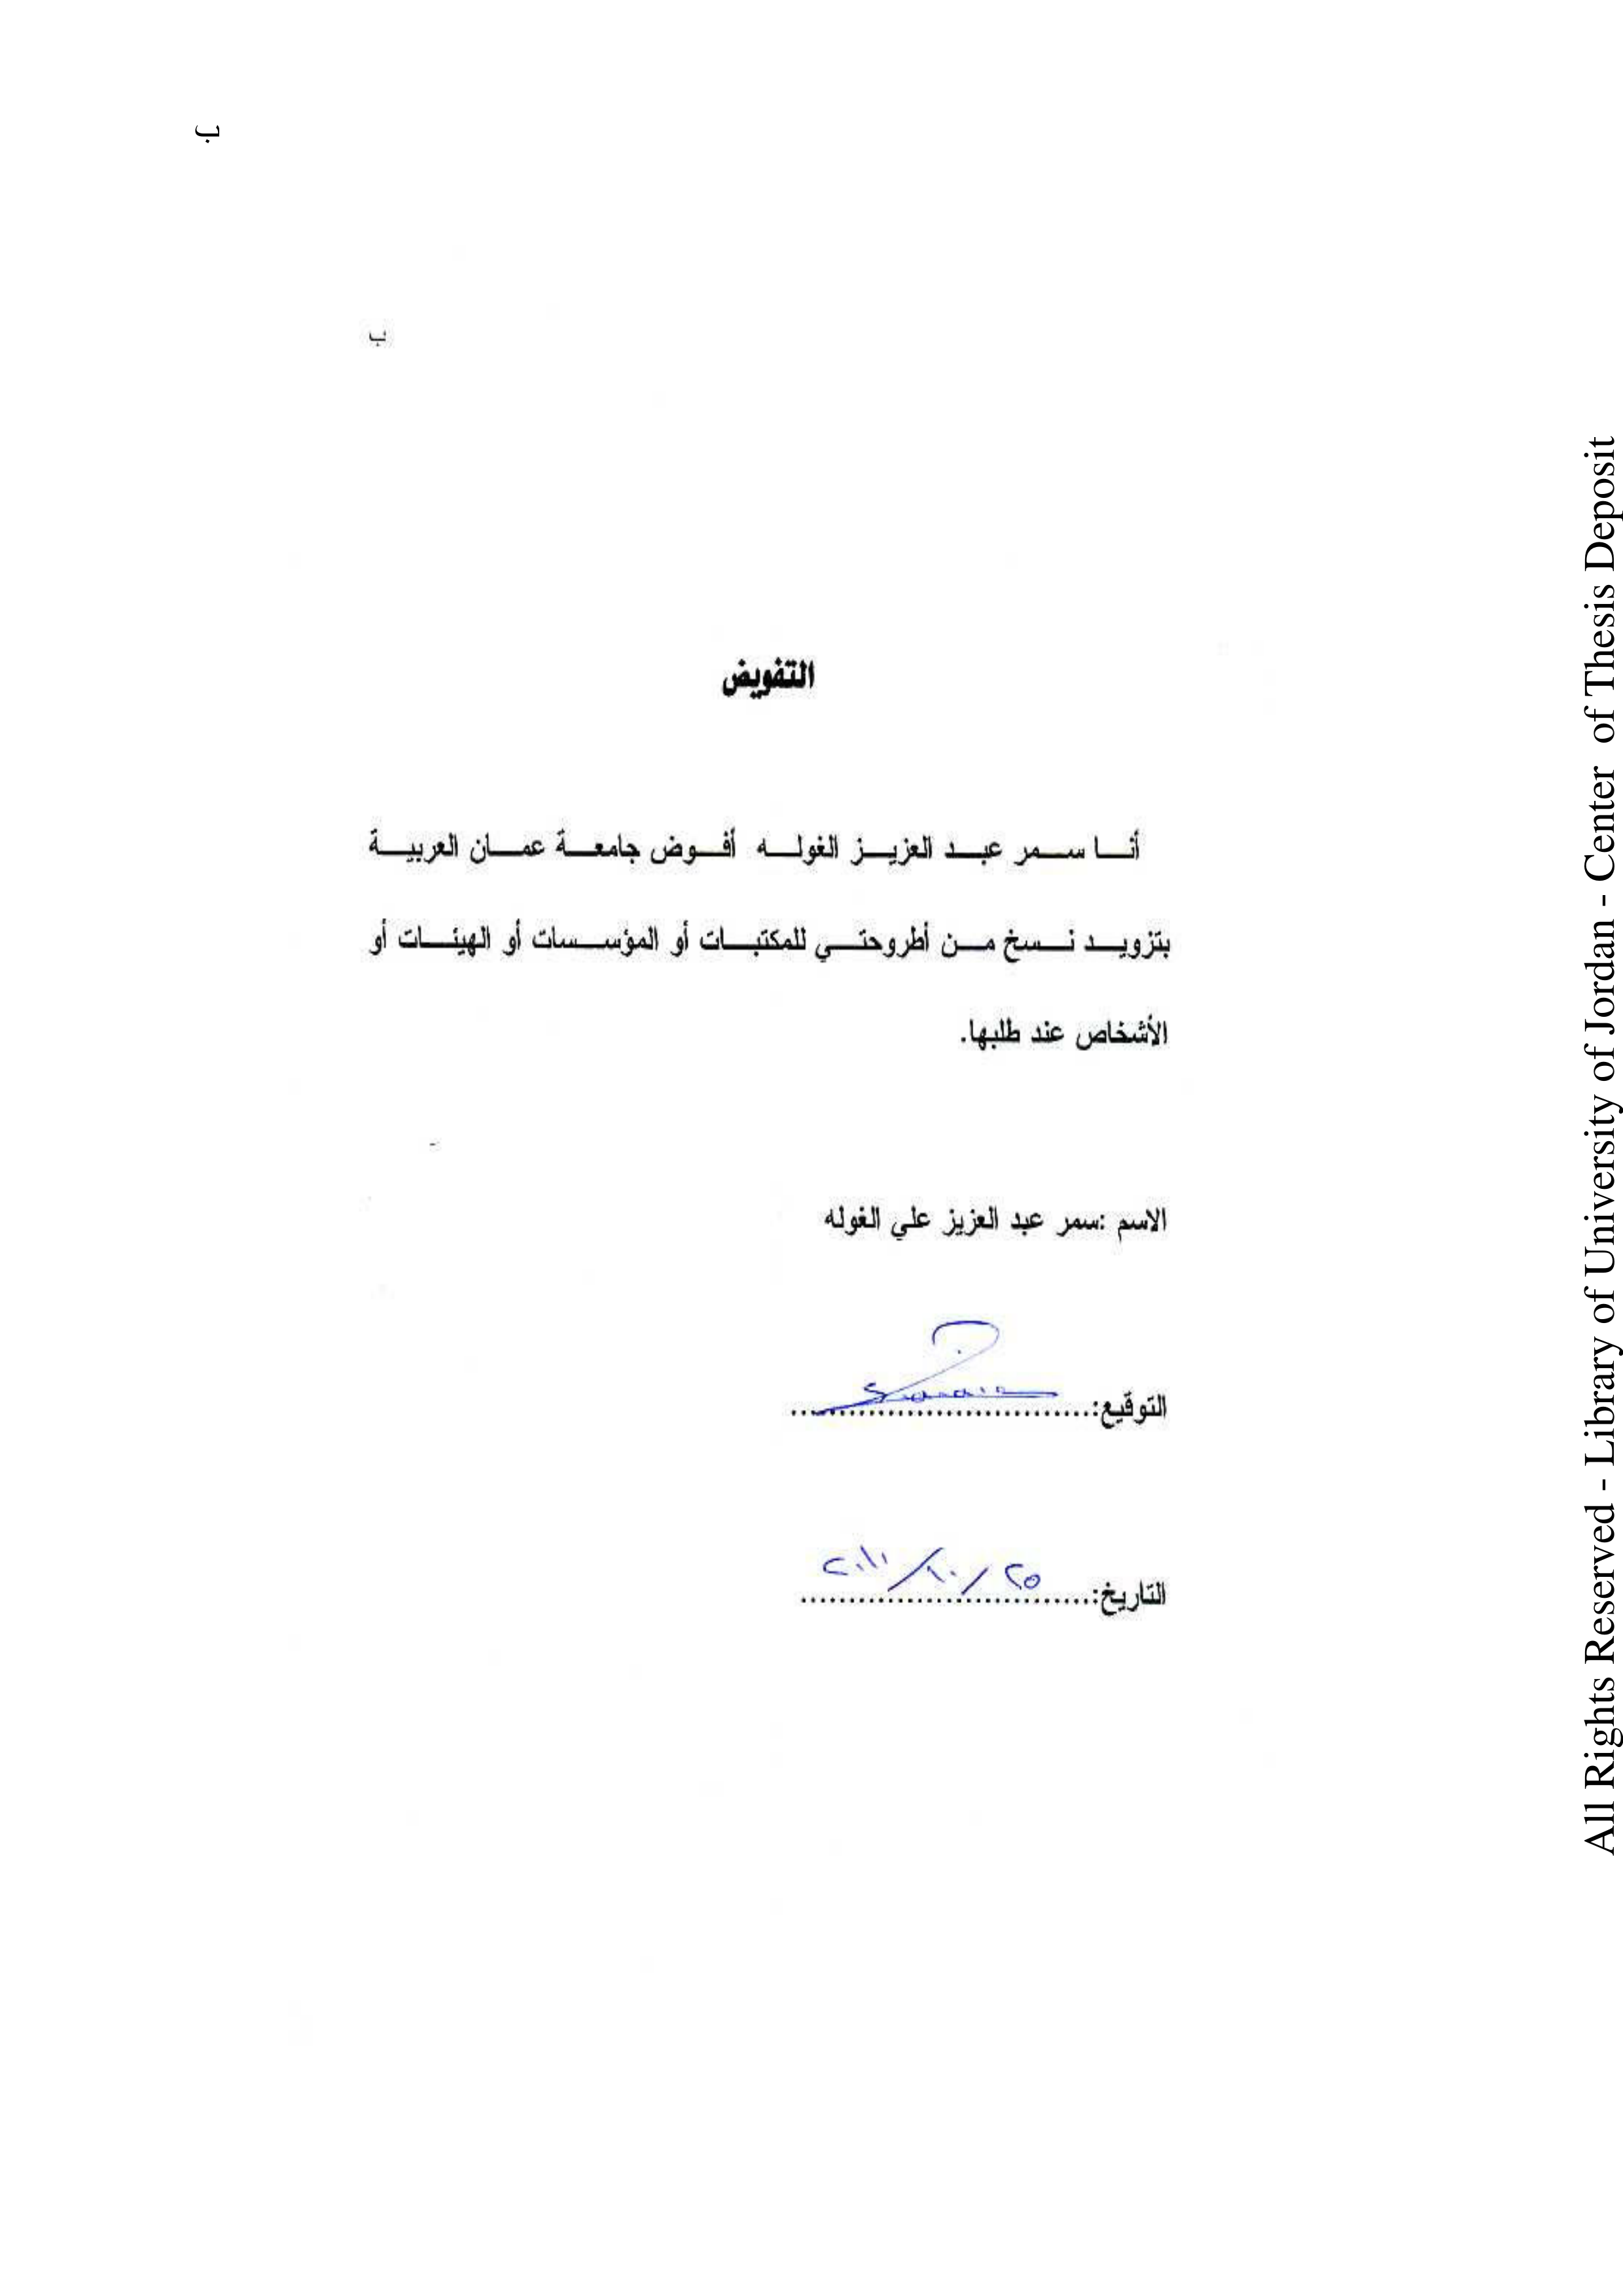 ب
ب
التفويض
أنا سمر عبد العزيز الغوله أفوض جامعة عمان العربية
بتزويد نسخ من أطروحتي للمكتبات أو المؤسسات أو الهيئات أو
الأشخاص عند طلبها.
الاسم :سمر عبد العزيز علي الغوله
التوقيع:..............................
التاريخ:.............................. ٢٥/١٠/٢٠١١
All Rights Reserved - Library of University of Jordan - Center of Thesis Deposit